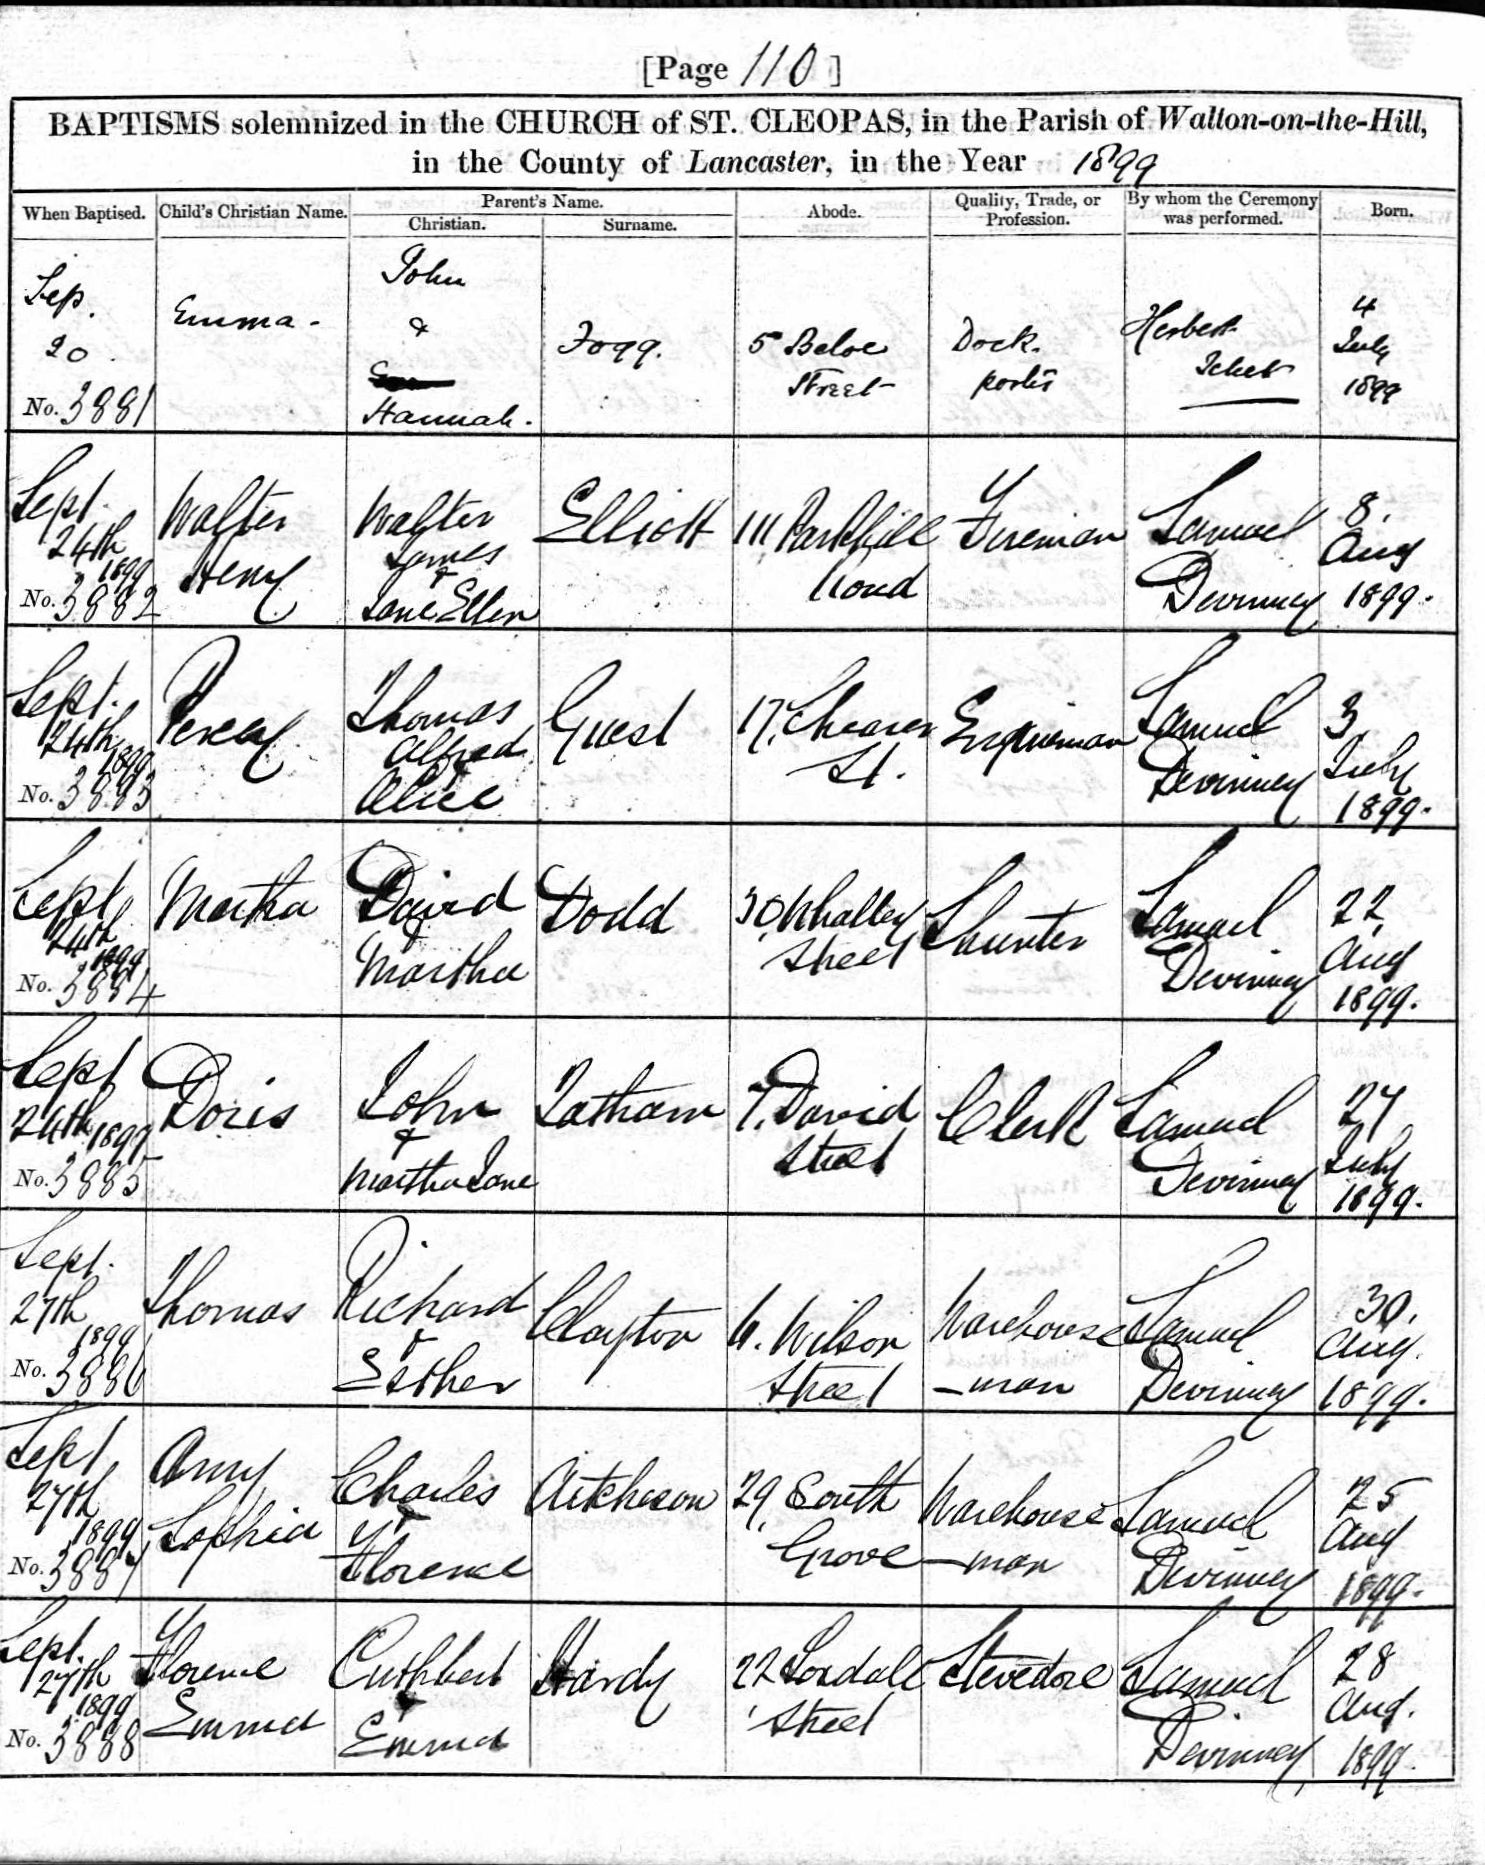 [Page 110]
BAPTISMS solemnized in the CHURCH of ST. CLEOPAS, in the Parish of Walton-on-the-Hill,
in the County of Lancaster, in the Year 1899
When Baptised. Child's Christian Name. Parent's Name. Christian. Surname. Abode. Quality, Trade, or Profession. By whom the Ceremony was performed. Born.
Sep. 20 No. 3881 Emma - John & Hannah. Fogg. 5 Beloe Street Dock porter Herbert 4 July 1899
Sept. 24th 1899 No. 3882 Walter Henry Walter James & Jane Ellen Elliott 111 Parkhill Road Fireman Samuel Devinney 8. Aug 1899.
Sept. 24th 1899 No. 3883 Percy Thomas Alfred Alice Guest 17, Shearer St. Engineman Samuel Devinney 3, July 1899.
Sept 24th 1899 No. 3884 Martha David & Martha Dodd 30, Whalley Street Shunter Samuel Devinney 22, Aug 1899.
Sept 24th 1899 No. 3885 Doris John & Martha Jane Latham 7, David Street Clerk Samuel Devinney 27 July 1899.
Sept. 27th 1899 No. 3886 Thomas Richard & Esther Clayton Wilson Street Warehouse -man Samuel Devinney 30. Aug. 1899.
Sept 27th 1899 No. 3887 Amy Sophia Charles & Florence Aitcheson 29, South Grove Warehouse -man Samuel Devinney 25 Aug 1899.
Sept. 27th 1899 No. 3888 Florence Emma Cuthbert & Emma Hardy 22, Street Stevedore Samuel Devinney 28 Aug. 1899.